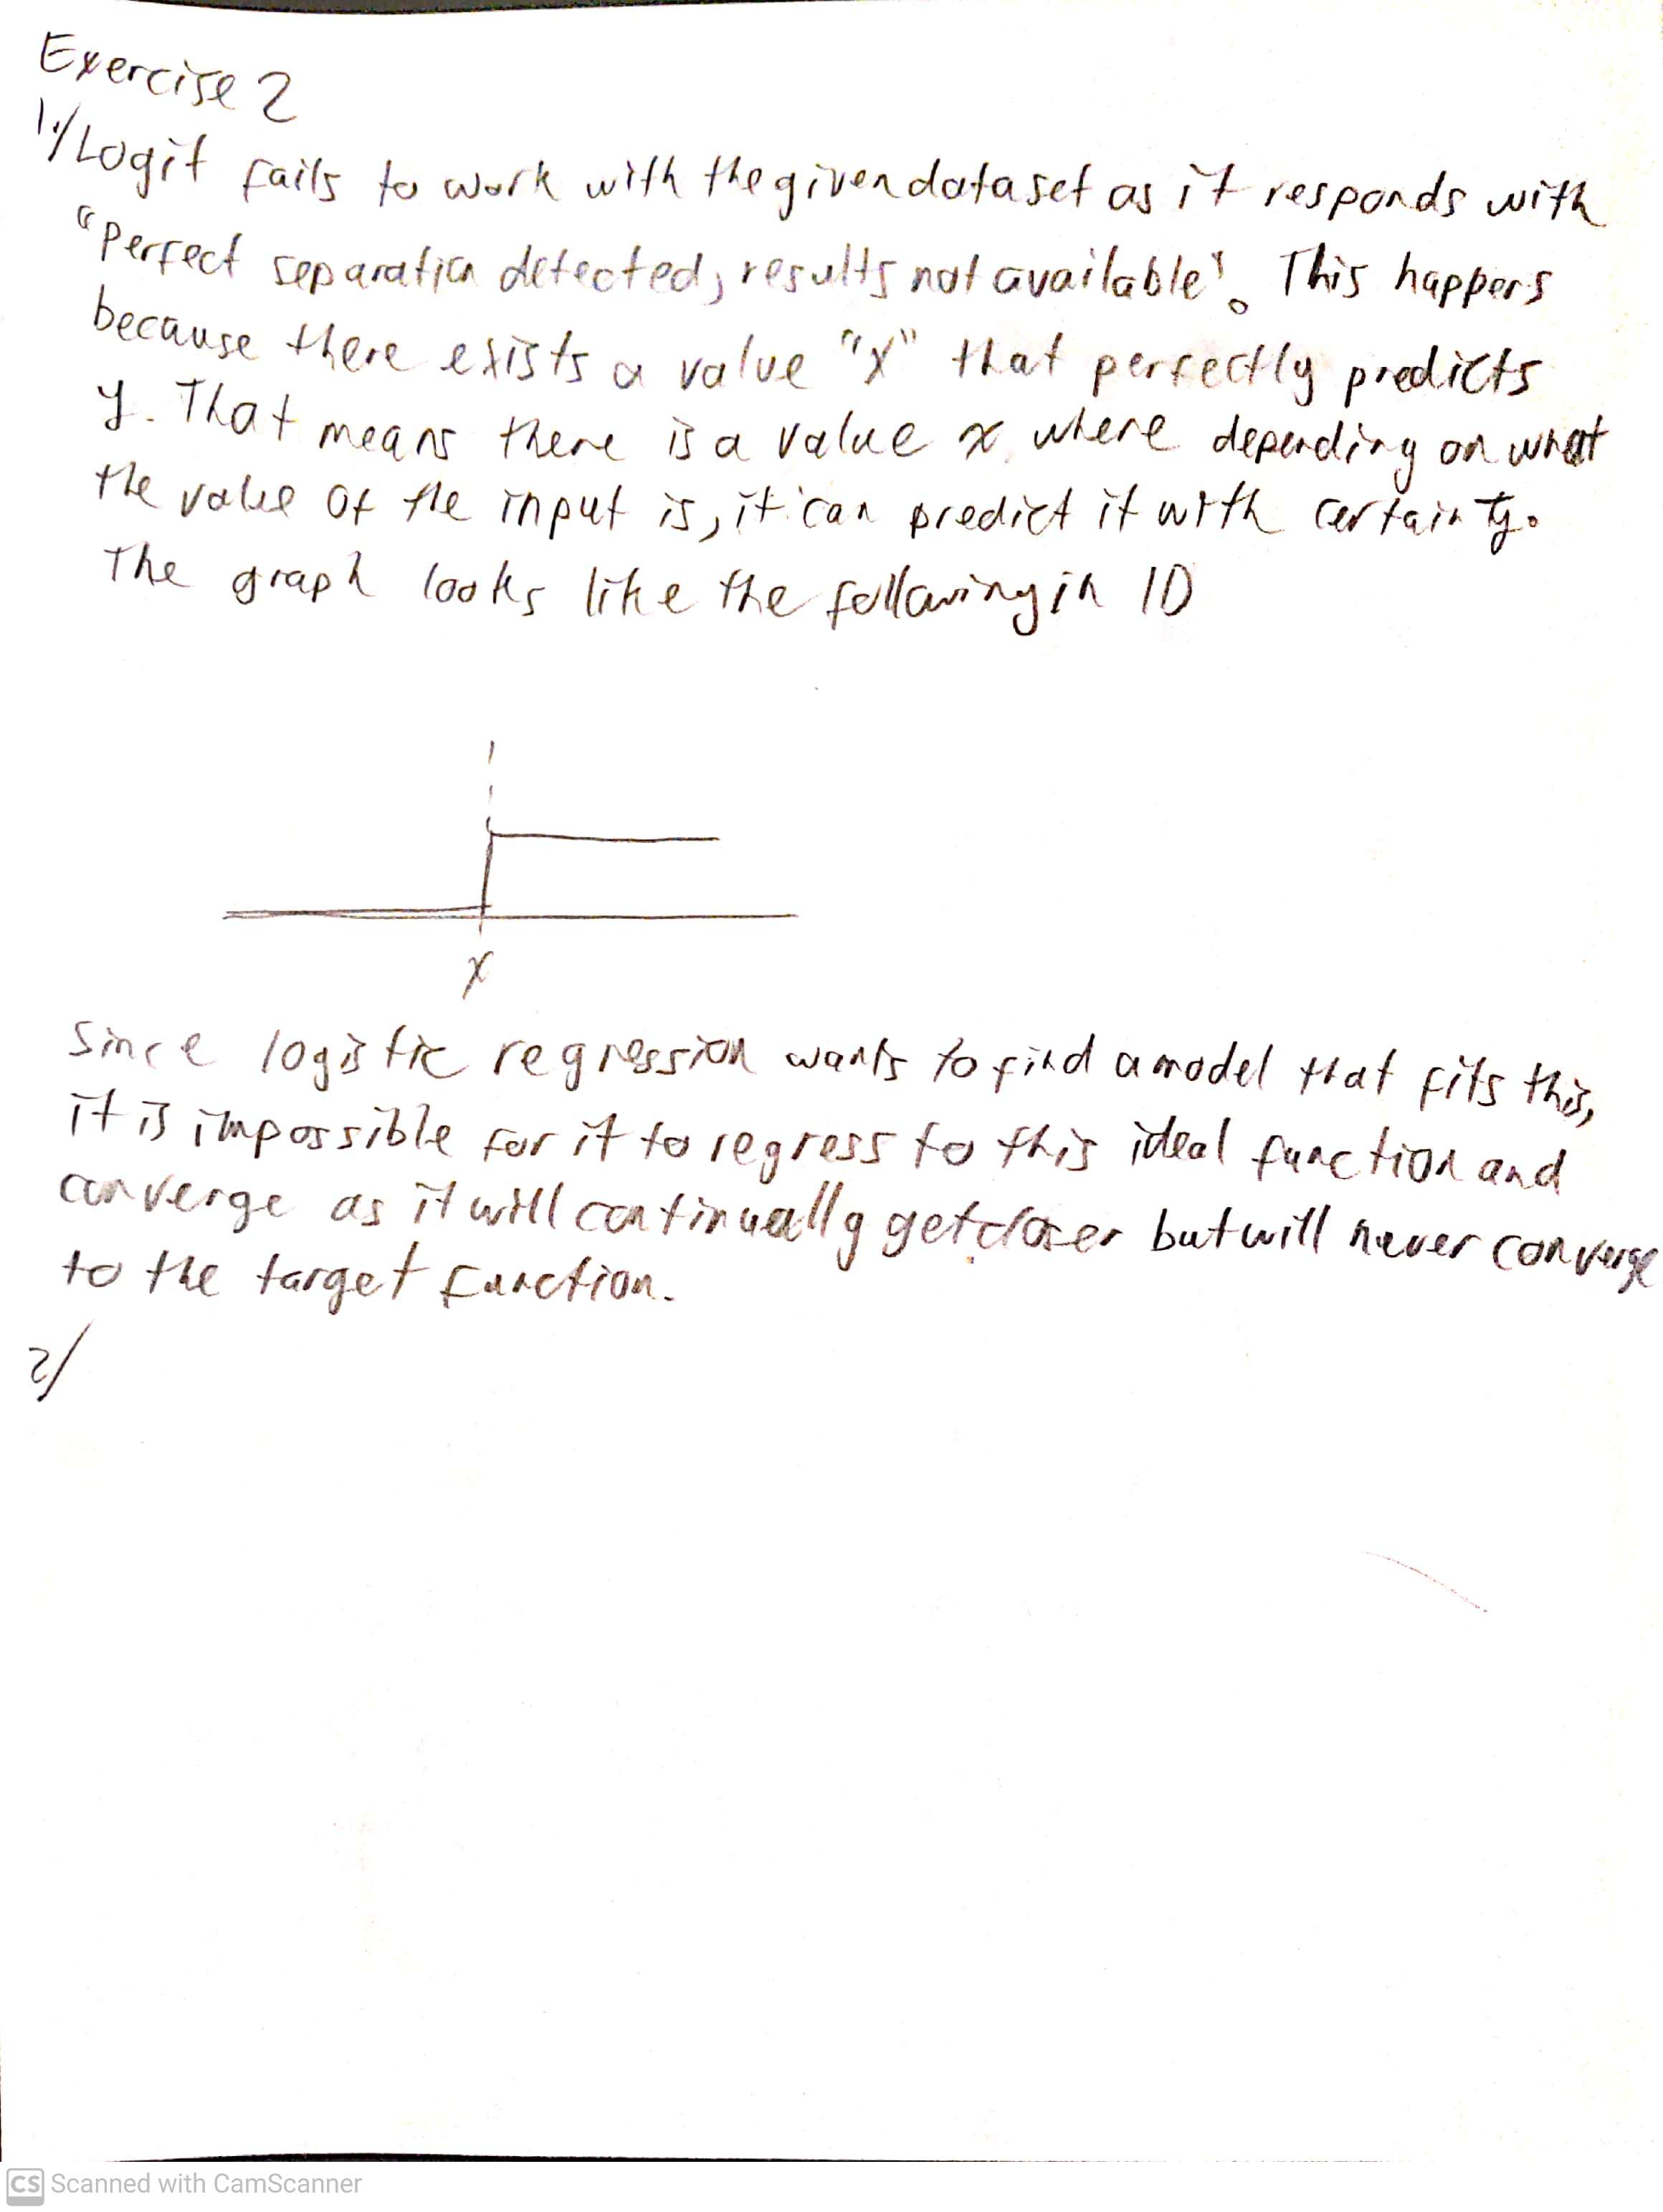 Exercise 2
1./ Logit fails to work with the given dataset as it responds with
"Perfect separation detected, results not available". This happens
because there exists a value "x" that perfectly predicts
y. That means there is a value x, where depending on what
the value of the input is, it can predict it with certainty.
The graph looks like the following in 1D
x
Since logistic regression wants to find a model that fits this,
it is impossible for it to regress to this ideal function and
converge as it will continually get closer but will never converge
to the target function.
2/
CS Scanned with CamScanner